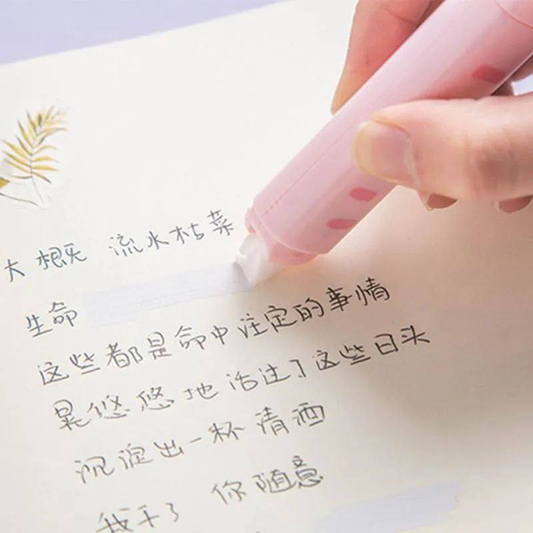 大概 流水枯荣
生命
这些都是命中注定的事情
晃悠悠地活过了这些日头
沉淀出一杯清酒
我干了 你随意